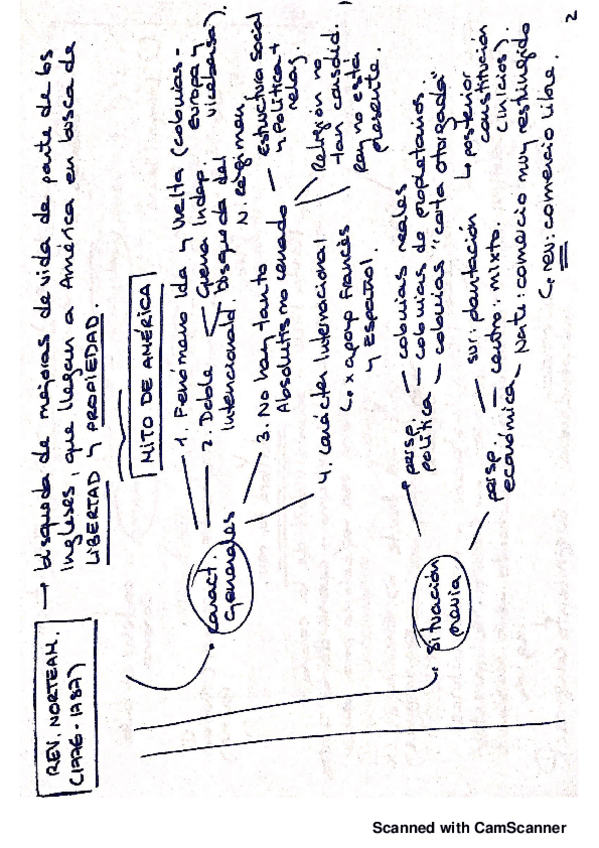 2
REV. NORTEAM.
(1776-1787)
→ búsqueda de mejoras de vida de parte de los
ingleses, que llegan a América en busca de
LIBERTAD y PROPIEDAD.
MITO DE AMÉRICA
• caract. generales
1. Fenómeno Ida y Vuelta (colonias-
europa y
viceversa).
2. Doble
Intencionald.
Guerra Indep.
Búsqueda del
N. Régimen
3. No hay tanto
Absolutismo cerrado
Estructura social
y política +
relaj.
Religión no
tan consolid.
Rey no está
presente.
4. Carácter Internacional
↳ x apoyo francés
y español.
• situación previa
persp. política
colonias reales
colonias de propietarios
colonias "carta otorgada"
↳ posterior
constitución
(inicios).
persp. económica
sur: plantación
centro: mixto.
Norte: comercio muy restringido
↳ rev: comercio libre.
Scanned with CamScanner